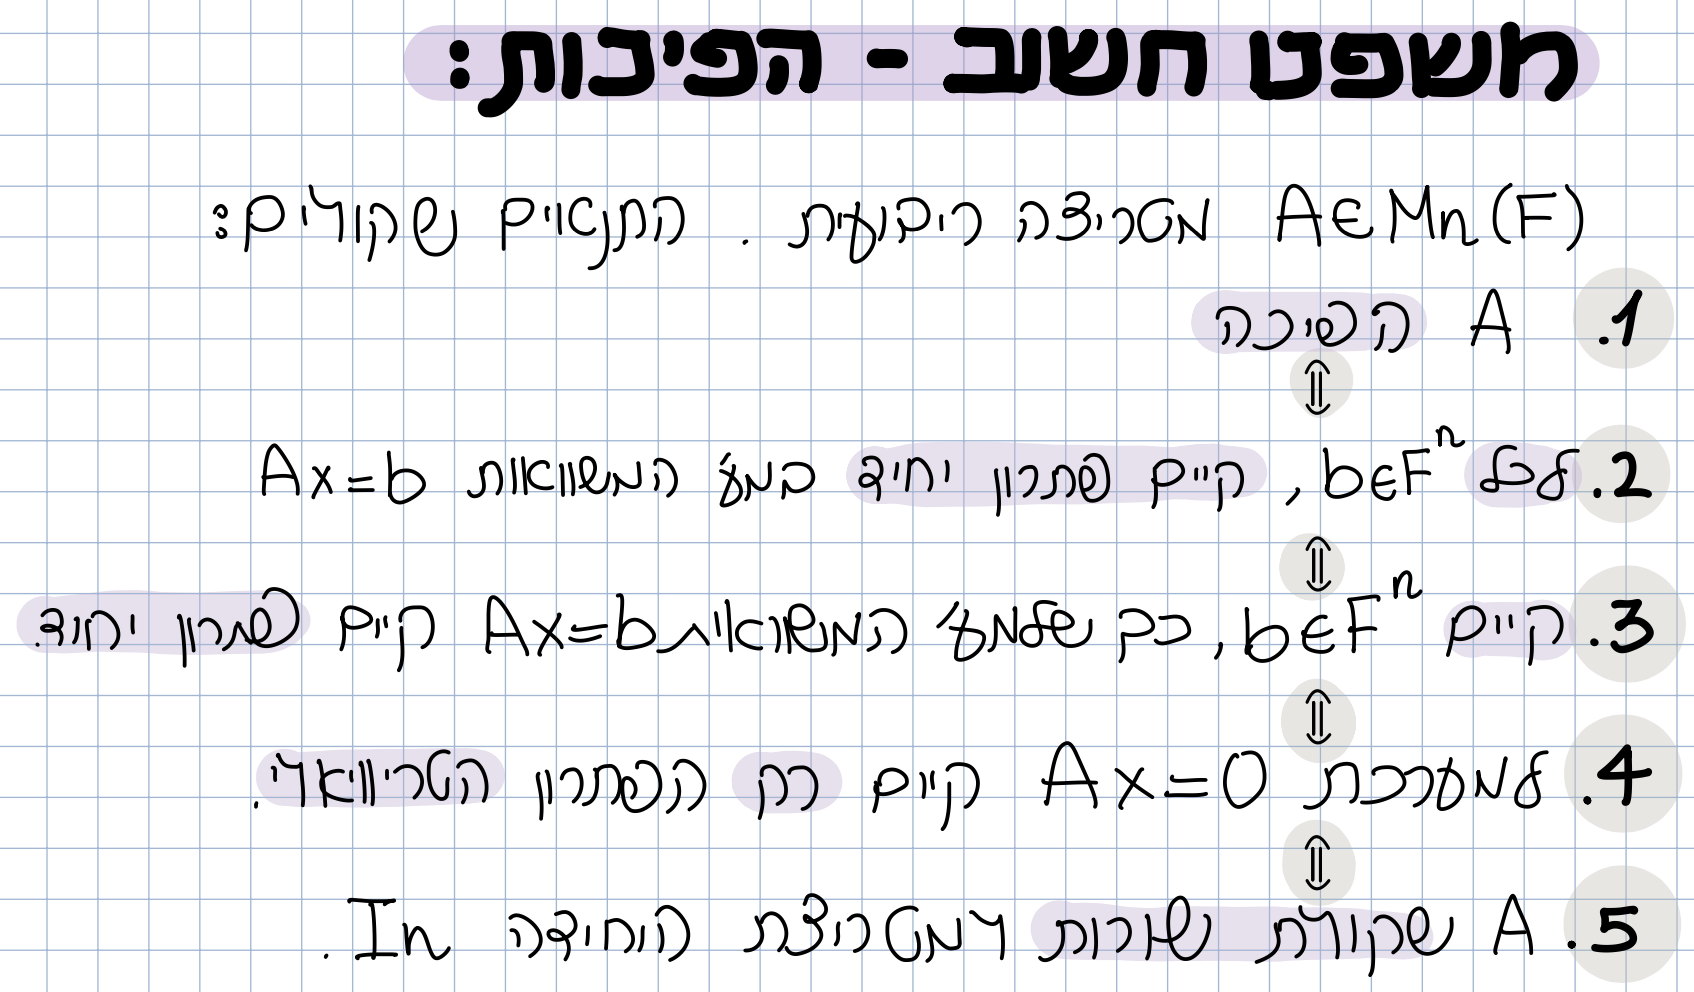 משפט חשוב - הפיכות:
A∈Mn(F) מטריצה ריבועית. התנאים שקולים:
1. A הפיכה
⇕
2. לכל b∈Fⁿ, קיים פתרון יחיד במע' המשוואות Ax=b
⇕
3. קיים b∈Fⁿ, כך שלמע' המשוואות Ax=b קיים פתרון יחיד.
⇕
4. למערכת Ax=0 קיים רק הפתרון הטריוויאלי.
⇕
5. A שקולת שורות למטריצת היחידה In.